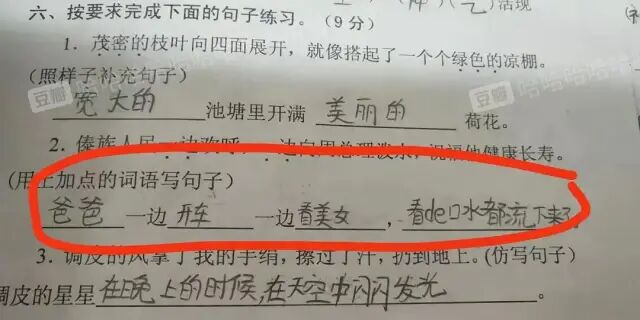 六、按要求完成下面的句子练习。(9分)
1. 茂密的枝叶向四面展开，就像搭起了一个个绿色的凉棚。
(照样子补充句子)
宽大的 池塘里开满 美丽的 荷花。
2. 傣族人民一边欢呼，一边向周总理泼水，祝福他健康长寿。
(用上加点的词语写句子)
爸爸 一边 开车 一边 看美女，看de口水都流下来了
3. 调皮的风拿了我的手绢，擦过了汗，扔到地上。(仿写句子)
调皮的星星 在晚上的时候,在天空中闪闪发光。
豆瓣
豆瓣